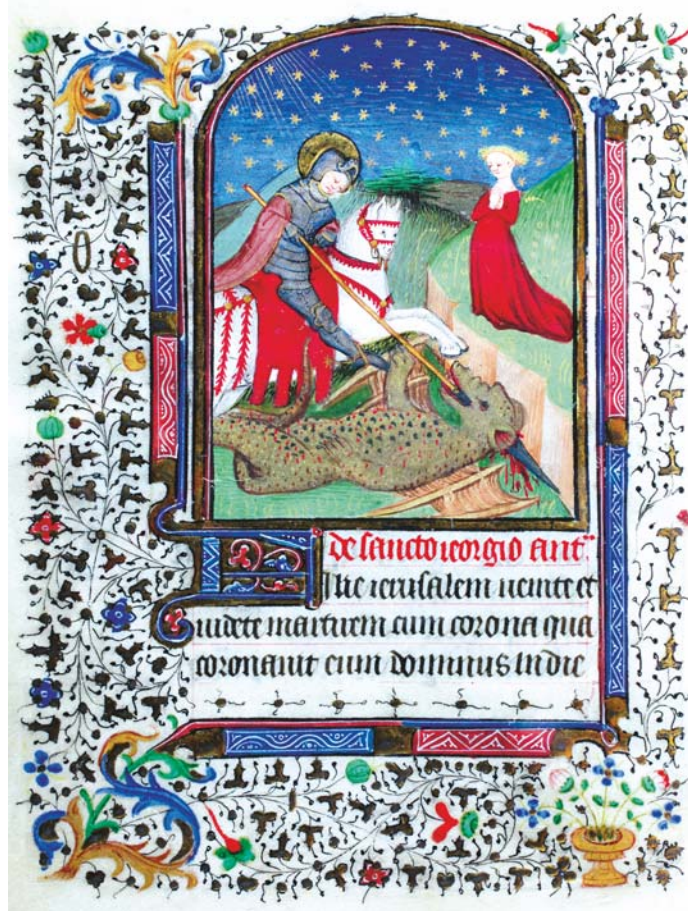 de sancto ieorgio ant
Filie ierusalem uenite et
uidete martirem cum corona qua
coronauit eum dominus in die